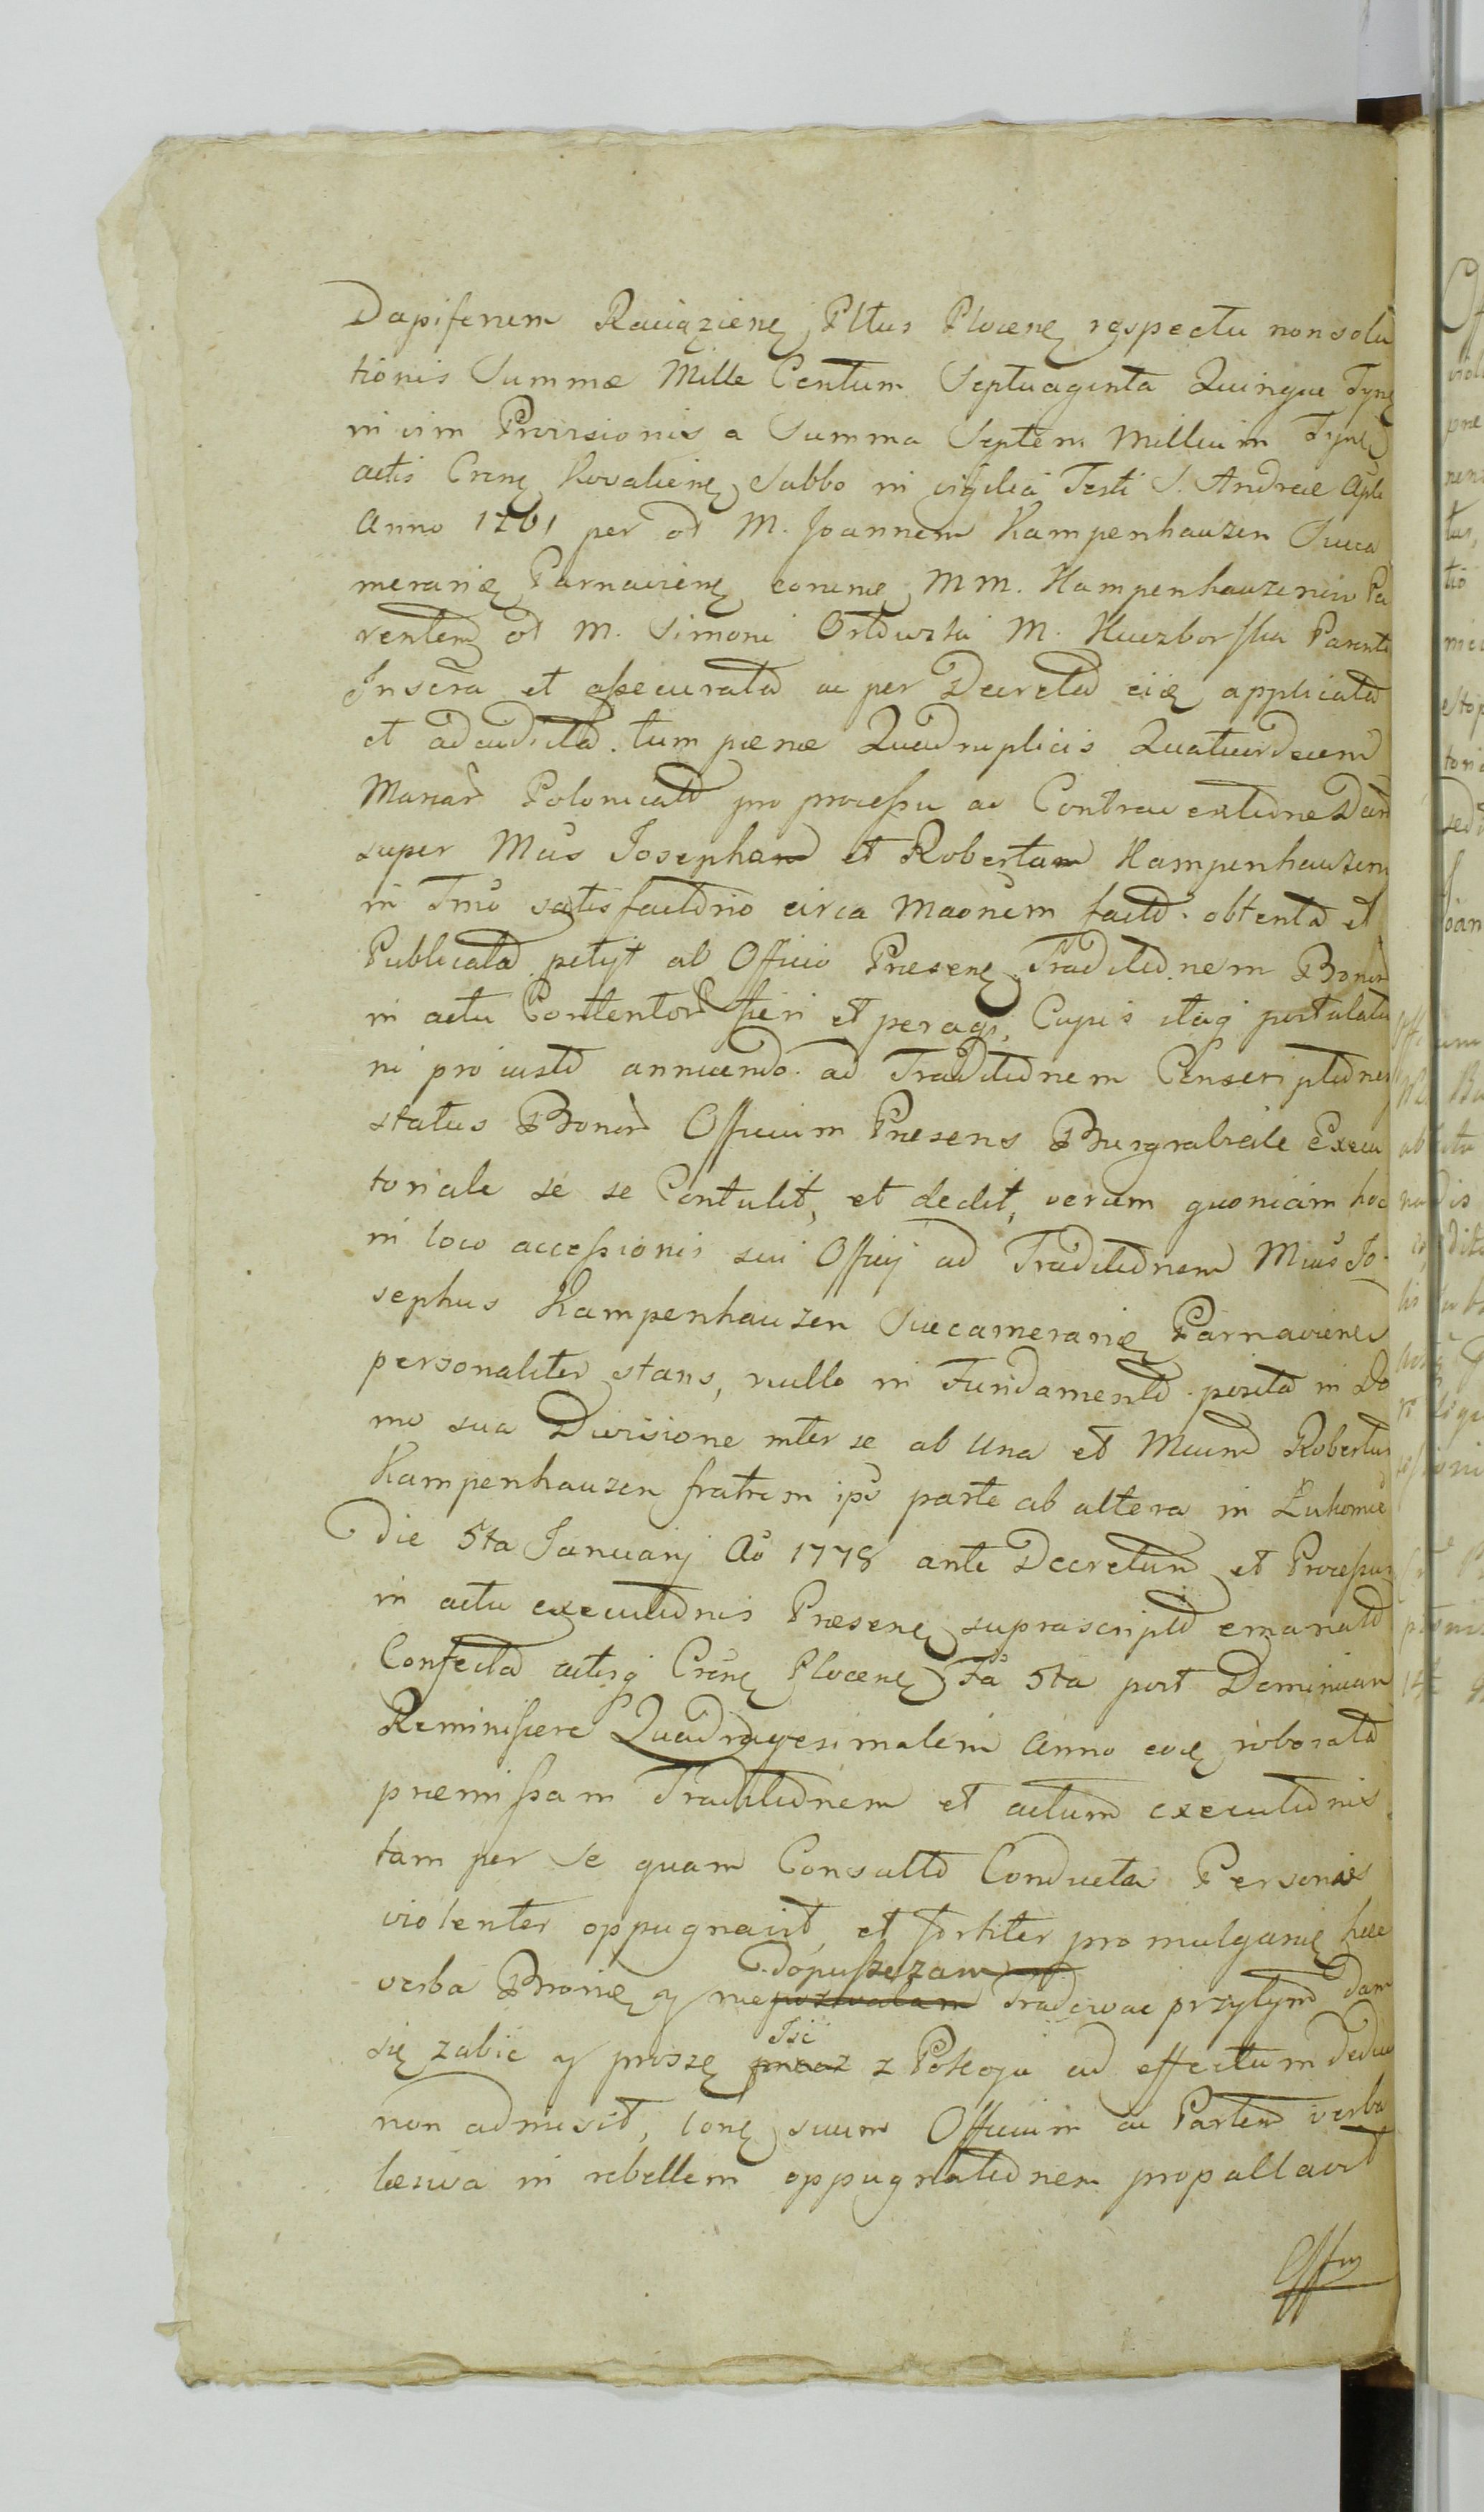 Dapiferum Raciązień Pttus Ploceń respectu nonsolu
tionis Summæ Mille Centum Septuaginta Quinque Fyń
in vim Provisionis a Summa Septem Millium Fyń
actis Creń Kovalień Sabbo in vigilia Festi S. Andreæ Apli
Anno 1761 per olĩ M. Joannem Kampenhauzen Succa
merarię Parnavień eorumę MM. Kampenhauzeniu Pa
rentem olĩ M. Simoni M. Parenti
Inscra et assecurata ac per Decreta eię applicata
et adiudicta. tum pænæ Quadruplicis Quatuordecem
Marcar Polonicald pro processu ac Contraventione Dań
super Mcis Josepham et Robertam Kampenhauzen
in Tmo satisfactorio circa Maonem facto. obtenta et
Publicata petyt ab Officio Præseń Traditionem Bonor
in actu Contentor fieri et peragi, Cujus itaq postulatu
ni pro iusto annuendo ad Traditionem Conscriptionem
status Bonor Officium Præsens Burgrabiale Execu
toriale se se Contulit, et dedit, verum quoniam hoc
in loco accessionis sui Officij ad Traditionem Mcus Jo-
sephus Kampenhauzen Succamerarię Parnavień
personaliter stans, nullo in Fundamento posita in Do
mo sua Divisione inter se ab una et Mcum Robertum
Kampenhauzen fratrem ips parte ab altera in Łukomie
die 5ta Januarij Ao 1778 ante Decretum et Processum
in actu executionis Præseń suprascripto emanato
Confecta actisq Creń Ploceń Fa 5ta post Dominicam
Reminiscere Quadragesimalem Anno eoę roborata
præmissam Traditionem et actum executionis
tam per se quam Consulto Conducta Personas
violenter oppugnavit, et fortiter promulganę hæc
dopuszczam
verba Bronię y nie pozwalam Tradować przytym Dam
Iść
się zabić y proszę precz z Pokoju ad effectum Deduci
non admisit, Conę suum Officium ac Partem verba
læsiva in rebellem oppugnationem propallavit
Offm